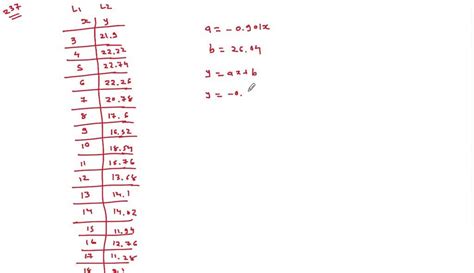 237
L1 L2
x y
3 21.9
4 22.22
5 22.74
6 22.26
7 20.78
8 17.6
9 16.52
10 18.54
11 15.76
12 13.68
13 14.1
14 14.02
15 11.94
16 12.76
17 11.28
18
a = -0.901x
b = 26.04
y = ax+b
y = -0.